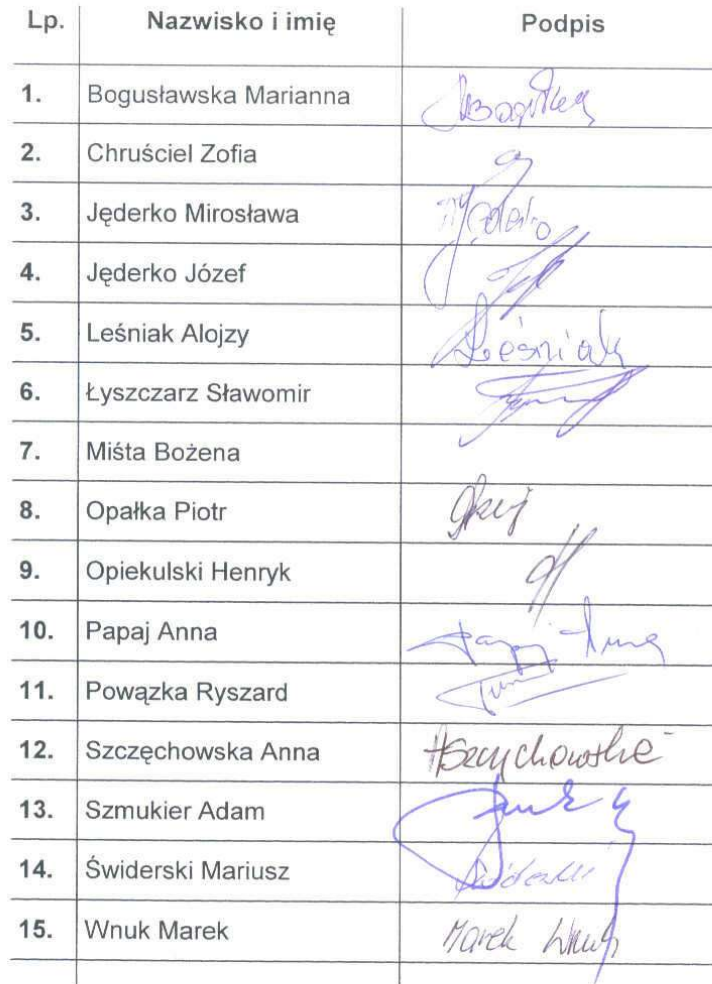 Lp. Nazwisko i imię Podpis
1. Bogusławska Marianna
2. Chruściel Zofia
3. Jęderko Mirosława
4. Jęderko Józef
5. Leśniak Alojzy Leśniak
6. Łyszczarz Sławomir
7. Miśta Bożena
8. Opałka Piotr
9. Opiekulski Henryk
10. Papaj Anna Papaj Anna
11. Powązka Ryszard
12. Szczęchowska Anna
13. Szmukier Adam
14. Świderski Mariusz
15. Wnuk Marek Marek Wnuk